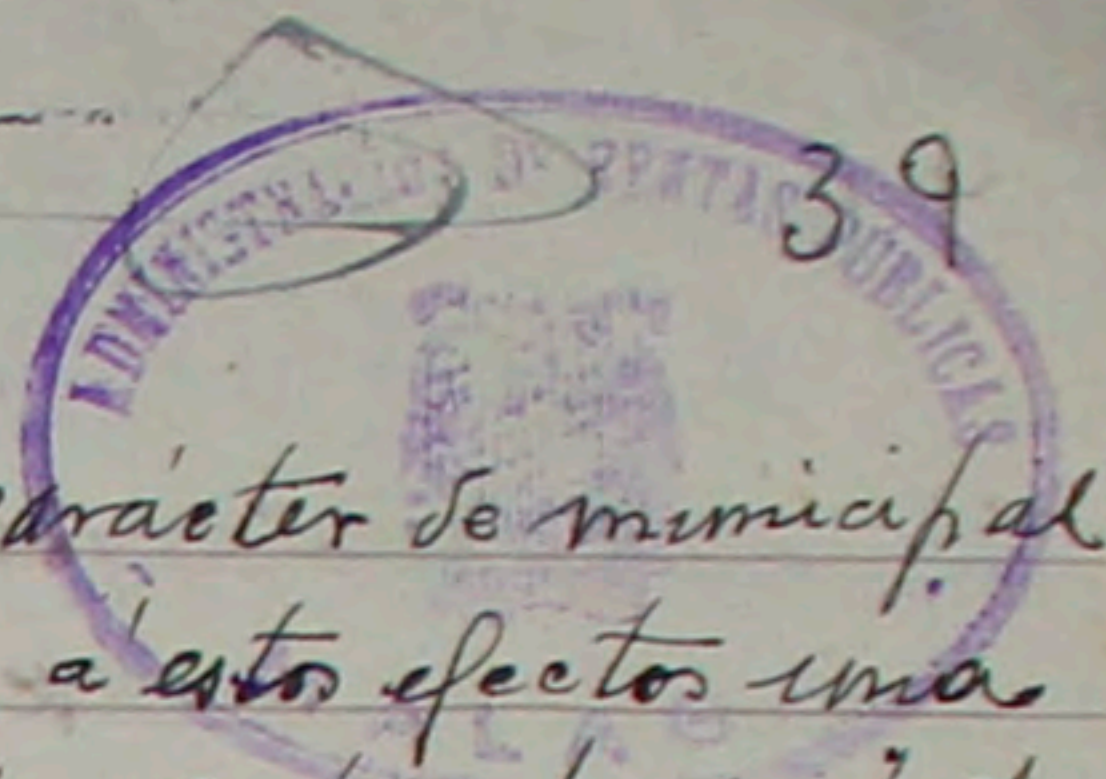 39
ADMINISTRA DE RENTAS PUBLICAS
carácter de municipal
a estos efectos una